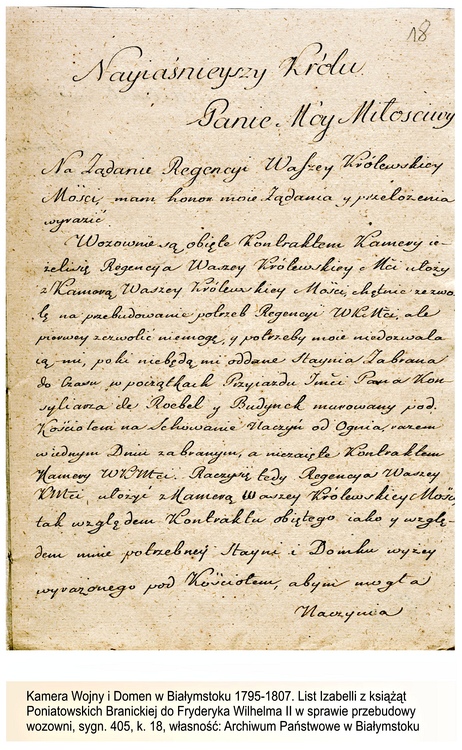 18
Nayiaśnieyszy Królu
Panie Móy Miłosciwy
Na Żądanie Regencyi Waszey Królewskiey
Mości, mam honor moie Żądania y przełożenia
wyrazić
Wozownie są obięte Kontraktem Kamery ie-
żeli się Regencya Waszey Królewskiey Mci ułoży
z Kamerą Waszey Królewskiey Mości, chętnie zezwo-
lę na przebudowanie potrzeb Regencyi WKMci, ale
pierwey zezwolić niemogę, y potrzeby moie niedozwala-
ią mi, poki niebędą mi oddane Staynia Zabrana
do Czasu, w początkach Przyiazdu Jmci Pana Kon-
syliarza de Roebel y Budynek murowany pod
Kościołem na Schowanie Naczyń od Ognia, razem
w iednym Dniu zabranym, a niezaięte Kontraktem
Kamery WKMci. Raczy się tedy Regencya Waszey
KMci, ułożyć z Kamerą Waszey Krolewskiey Mości
tak względem Kontraktu obiętego iako y wzglę-
dem mnie potrzebney Stayni i Domku wyżey
wyrażonego pod Kościołem, abym mogła
Naczynia
Kamera Wojny i Domen w Białymstoku 1795-1807. List Izabelli z książąt
Poniatowskich Branickiej do Fryderyka Wilhelma II w sprawie przebudowy
wozowni, sygn. 405, k. 18, własność: Archiwum Państwowe w Białymstoku